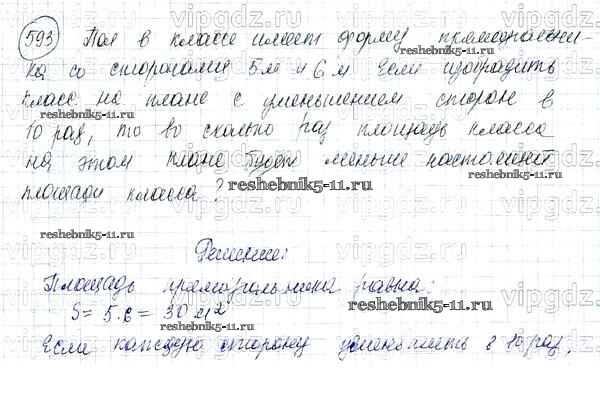 593 Пол в классе имеет форму прямоугольни-
ка со сторонами 5 м и 6 м. Если изобразить
класс на плане с уменьшением сторон в
10 раз, то во сколько раз площадь класса
на этом плане будет меньше настоящей
площади класса?
Решение:
Площадь прямоугольника равна:
S = 5·6 = 30 м²
Если каждую сторону уменьшить в 10 раз,
vipgdz.com
reshebnik5-11.ru